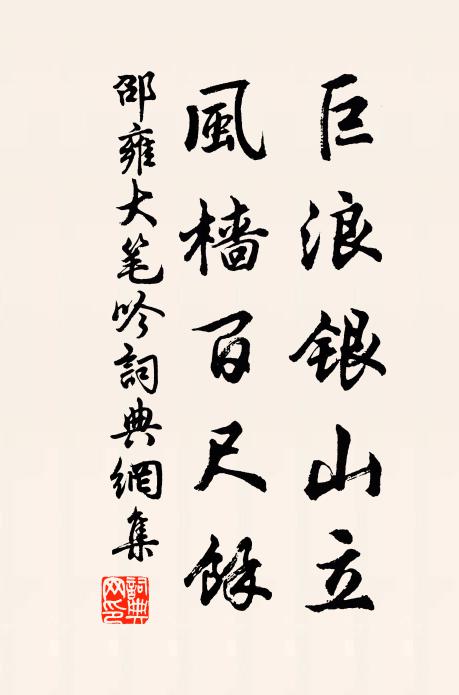 巨浪銀山立
風檣百尺餘
邵雍大笔吟詞典網集
詞典網印